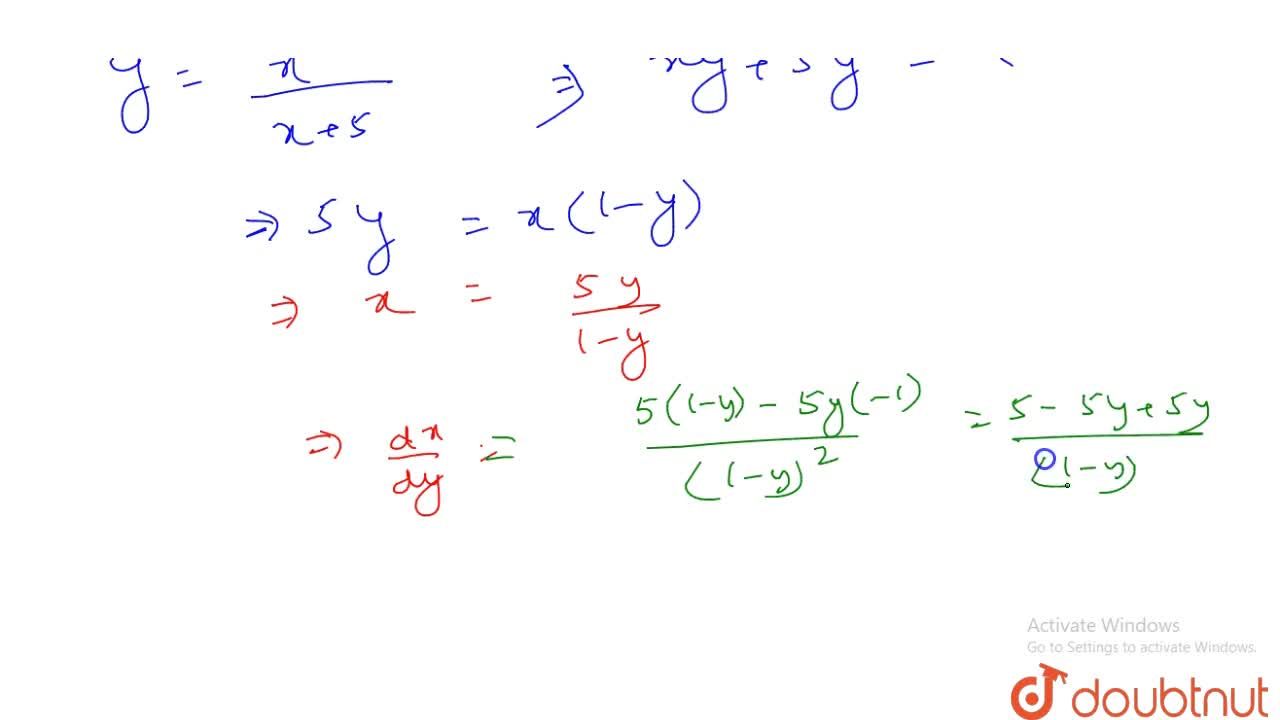 y = x/(x+5) ⇒ xy + 5y =
⇒ 5y = x(1-y)
⇒ x = 5y/(1-y)
⇒ dx/dy = (5(1-y) - 5y(-1))/(1-y)^2 = (5 - 5y + 5y)/(1-y)
Activate Windows
Go to Settings to activate Windows.
doubtnut